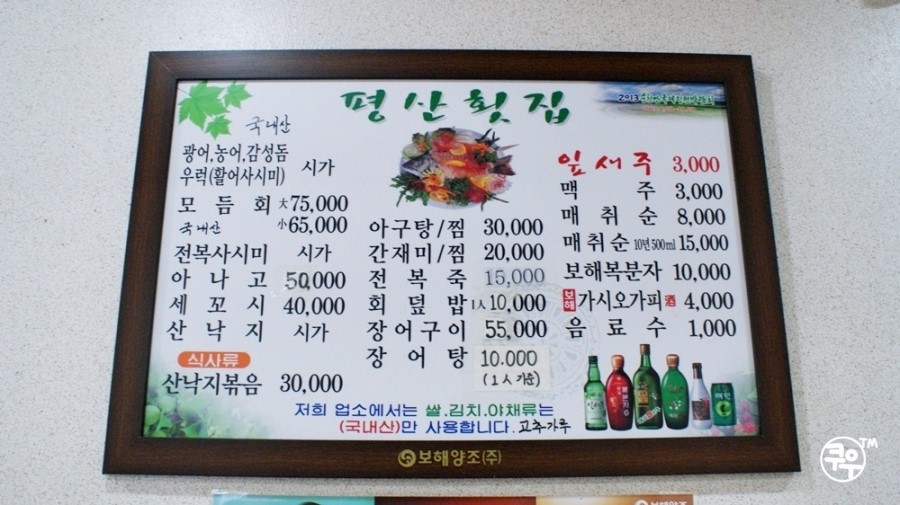 평산횟집
국내산
광어,농어,감성돔
우럭(활어사시미) 시가
모듬회 大75,000
국내산 小65,000
전복사시미 시가
아나고 50,000
세꼬시 40,000
산낙지 시가
식사류
산낙지볶음 30,000
아구탕/찜 30,000
간재미/찜 20,000
전복죽 15,000
회덮밥 1人10,000
장어구이 55,000
장어탕 10.000
(1人 기준)
2013
잎새주 3,000
맥주 3,000
매취순 8,000
매취순 10년 500ml 15,000
보해복분자 10,000
보해 가시오가피 酒 4,000
음료수 1,000
저희 업소에서는 쌀.김치.야채류는
(국내산)만 사용합니다. 고추가루
보해양조(주)
보해양조
쿠우™